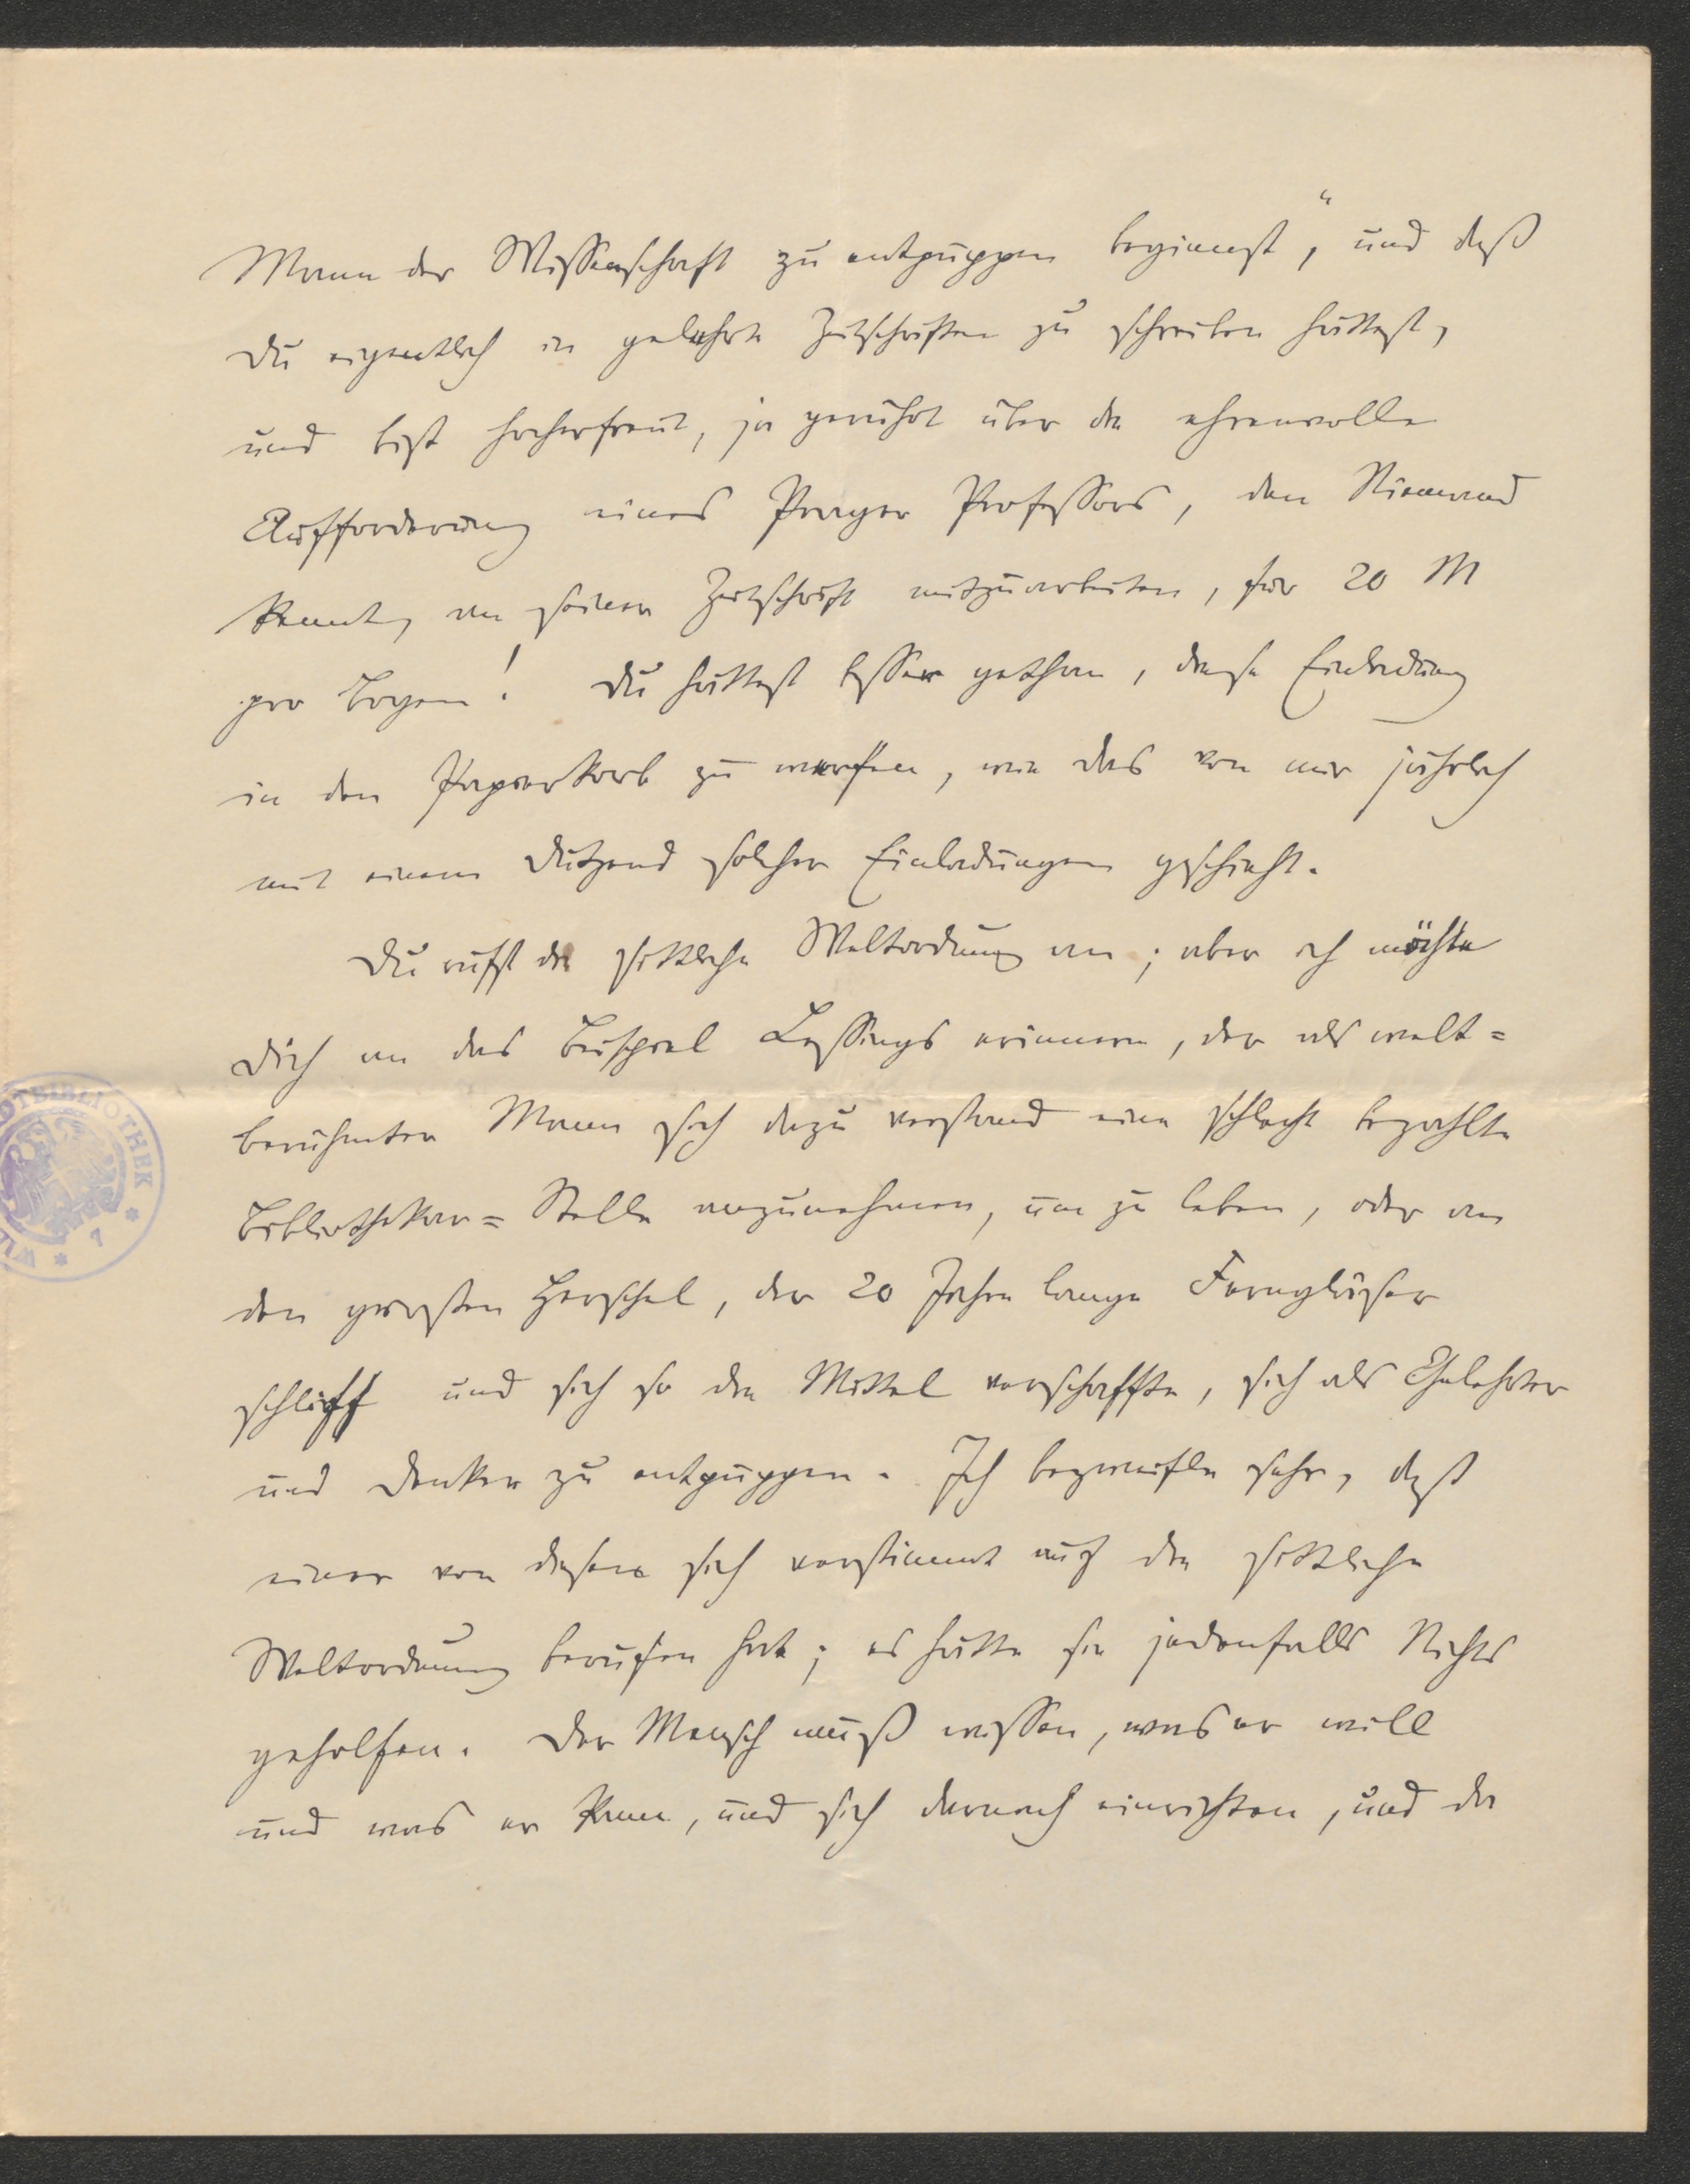 Mann der Wissenschaft zu entpuppen beginnst", und daß
Du eigentlich in gelehrte Zeitschriften zu schreiben hättest,
und bist hocherfreut, ja gerührt über die ehrenvolle
Aufforderung eines Prager Professors, den Niemand
kennt, an seiner Zeitschrift mitzuarbeiten, für 20 M
pro Bogen! Du hättest besser gethan, diese Einladung
in den Papierkorb zu werfen, wie das von mir jährlich
mit einem Dutzend solcher Einladungen geschieht.
Du rufst die sittliche Weltordnung an; aber ich möchte
Dich an das Beispiel Lessings erinnern, der als welt=
berühmter Mann sich dazu verstand eine schlecht bezahlte
Bibliothekar= Stelle anzunehmen, um zu leben, oder an
den grossen Herschel, der 20 Jahre lange Ferngläser
schliff und sich so die Mittel verschaffte, sich als Gelehrter
und Denker zu entpuppen. Ich bezweifle sehr, daß
einer von diesen sich verstimmt auf die sittliche
Weltordnung berufen hat; es hätte sie jedenfalls Nichts
geholfen. Der Mensch muß wissen, was er will
und was er kann, und sich darnach einrichten, und die
STADTBIBLIOTHEK * 7 * WIEN